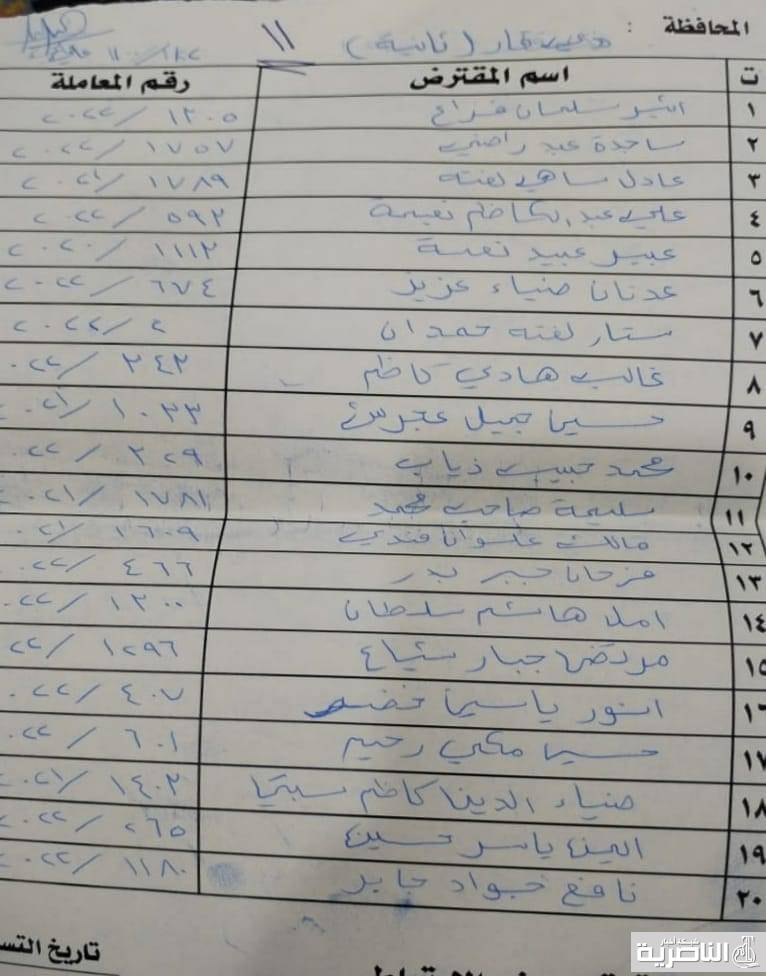 المحافظة : ذي قار (ثانية) ١١
ت اسم المقترض رقم المعاملة
١ اثير سلمان فراع ١٣٠٥ / ٢٠٢٢
٢ ساجدة عبد راضي ١٧٥٧ / ٢٠٢٢
٣ عادل ساهي لفته ١٧٨٩ / ٢٠٢١
٤ علي عبد الكاظم نعيمة ٥٩٢ / ٢٠٢٢
٥ عبير عبيد نعمة ١١١٢ / ٢٠٢٠
٦ عدنان ضياء عزيز ٦٧٤ / ٢٠٢٢
٧ ستار لفته حمدان ٢ / ٢٠٢٢
٨ غالب هادي كاظم ٣٤٢ / ٠٢٢
٩ حسين جميل عجرش ١٠٣٣ / ٠٢١
١٠ محمد حبيب ذياب ٣٢٩ / ٠٢٢
١١ سليمة صاحب محمد ١٧٨١ / ٠٢١
١٢ مالك علوان فندي ١٦٠٩ / ٠٢١
١٣ فرحان جبر بدر ٤٦٦ / ٠٢٢
١٤ امل هاشم سلطان ١٣٠٠ / ٠٢٢
١٥ مرتضى جبار شياع ١٢٩٦ / ٢٢
١٦ انور ياسين خضير ٤٠٧ / ٠٢٢
١٧ حسين مكي رحيم ٦٠١ / ٠٢٢
١٨ ضياء الدين كاظم سبتي ١٤٠٢ / ٠٢١
١٩ ياسر حسين ٢٦٥ / ٢٠٢٢
٢٠ نافع جواد جابر ١١٨٠ / ٢٠٢٢
تاريخ
شبكة اخبار الناصرية